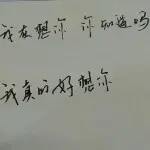 我在想你 你知道吗
我真的好想你